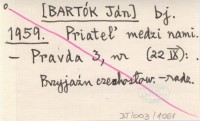 [BARTÓK Ján] bj.
1959. Priateľ medzi nami.
– Pravda 3, nr (22 IX): .
Przyjaźń czechosłow.-radz.